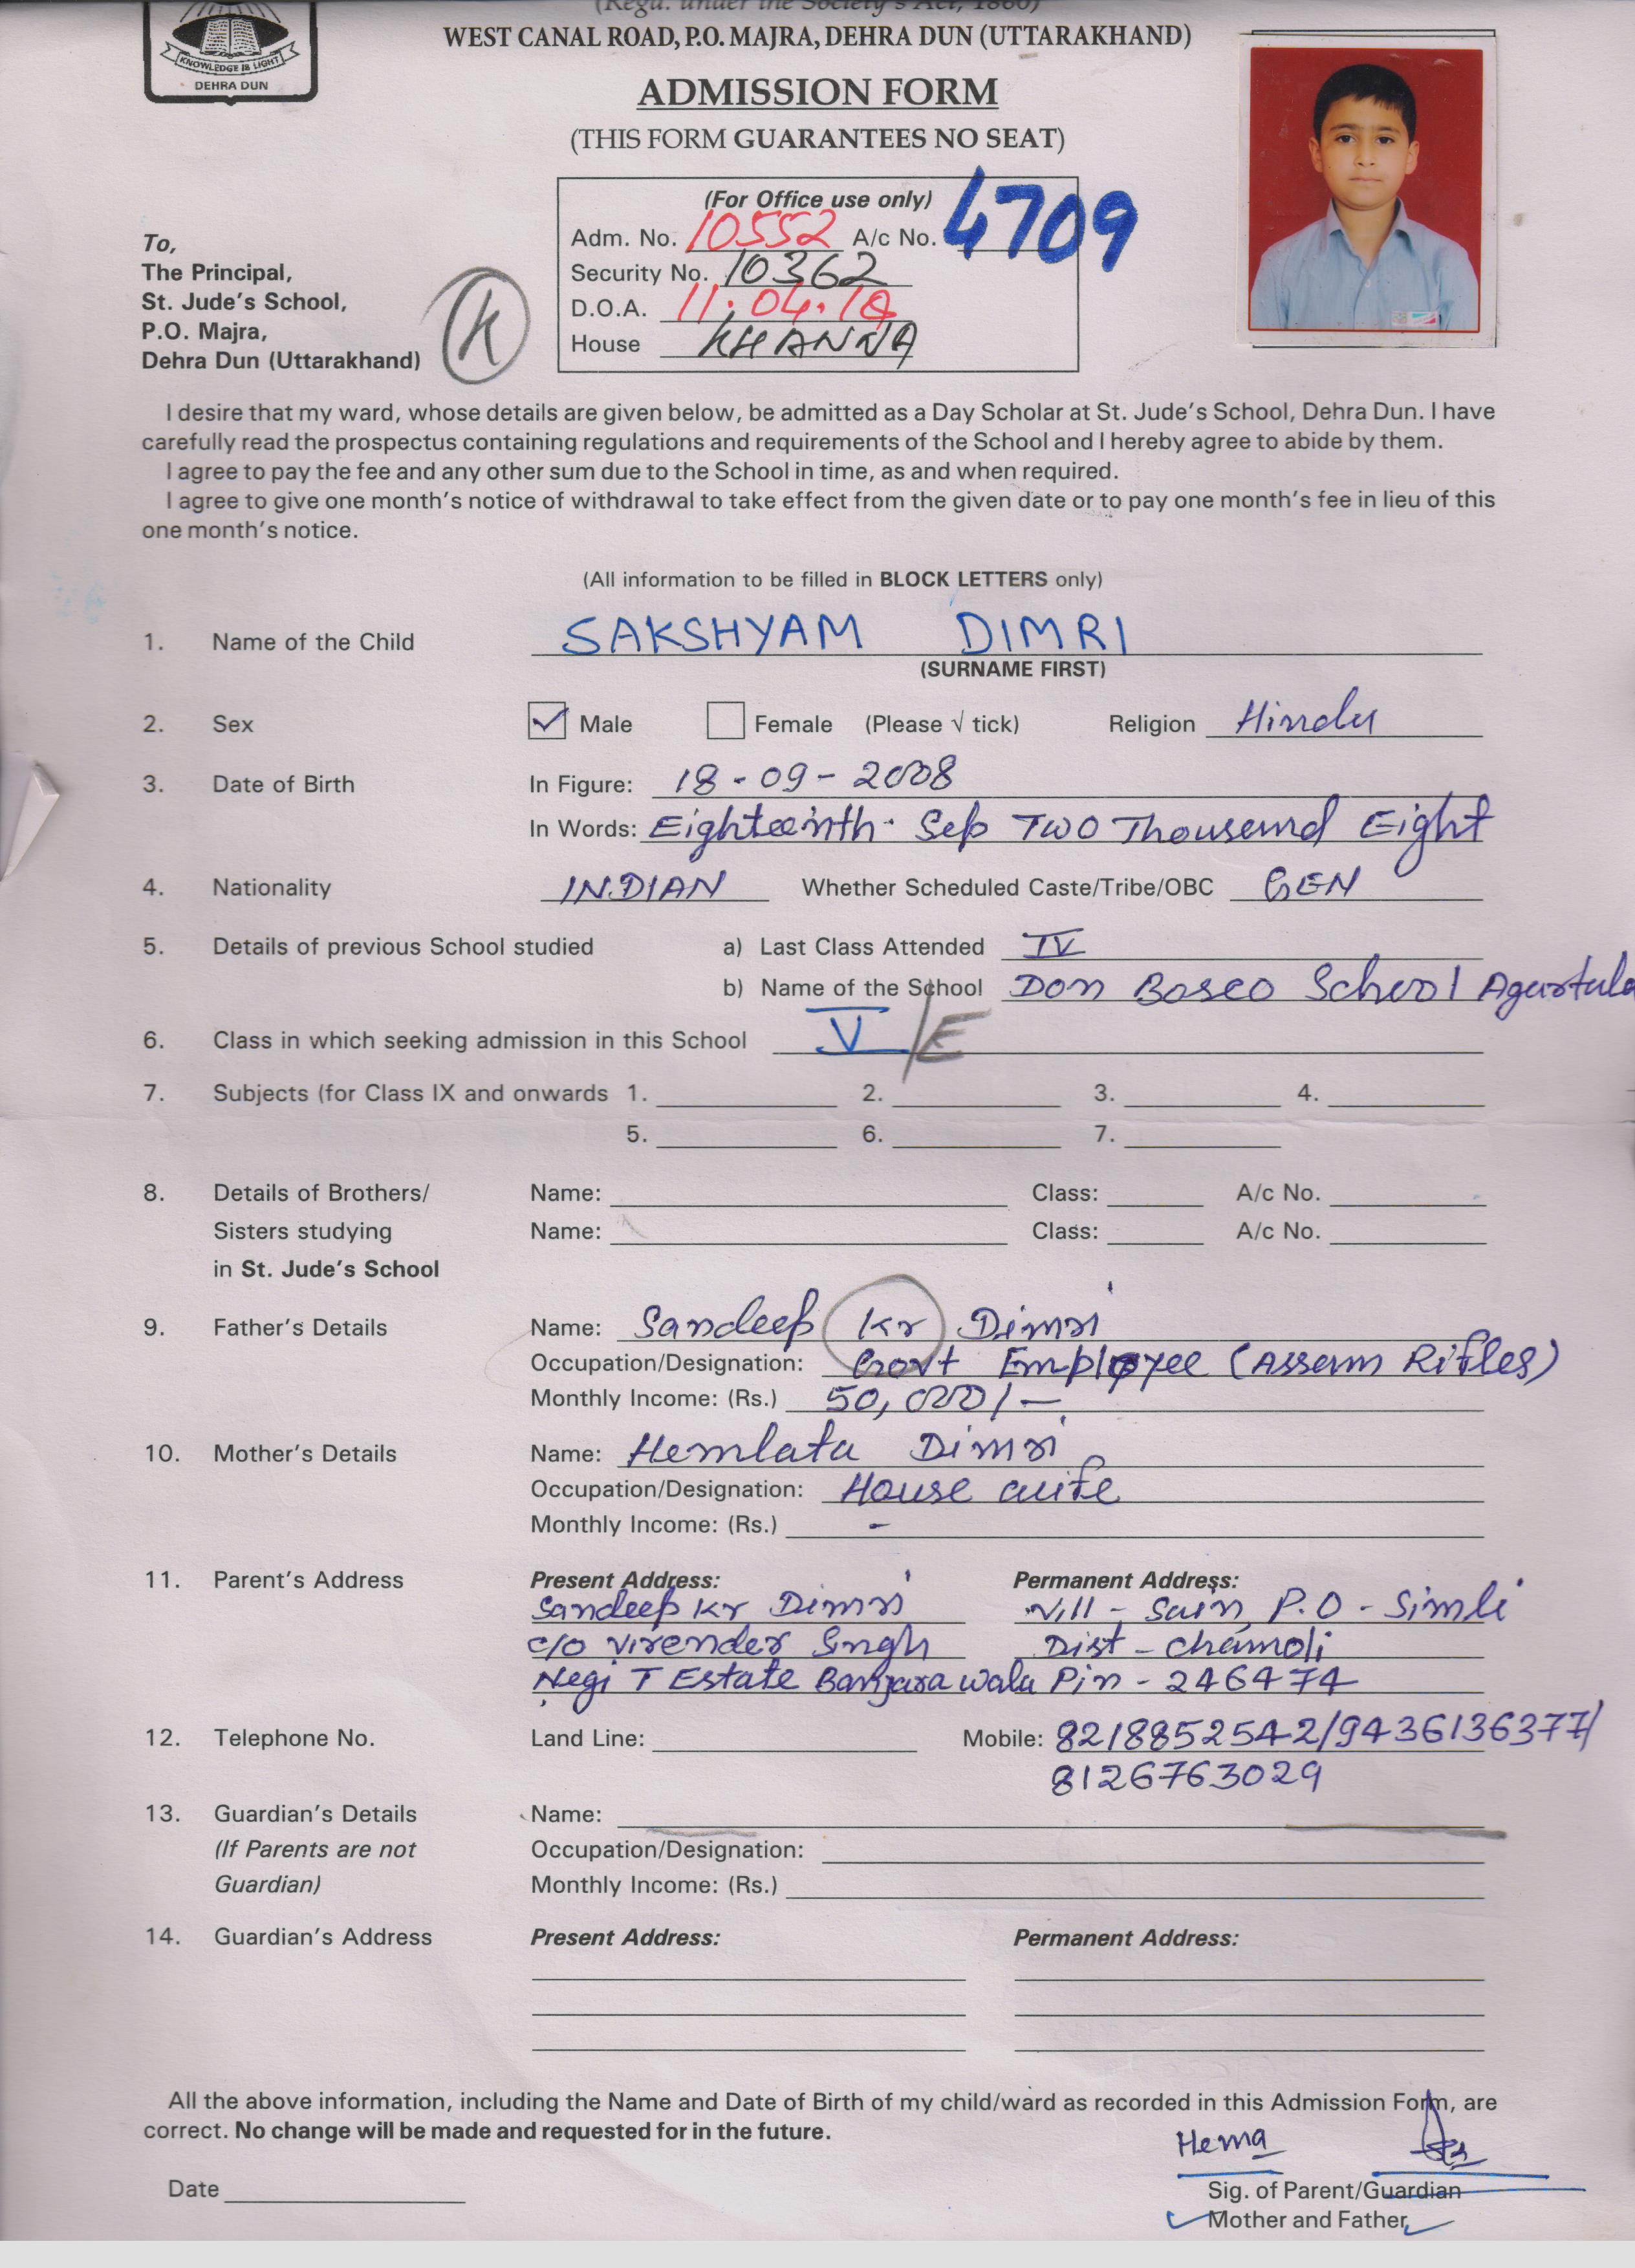 (Regd. under the Society's Act, 1860)
WEST CANAL ROAD, P.O. MAJRA, DEHRA DUN (UTTARAKHAND)
KNOWLEDGE IS LIGHT
DEHRA DUN
ADMISSION FORM
(THIS FORM GUARANTEES NO SEAT)
(For Office use only)
Adm. No. 10552 A/c No. 4709
Security No. 10362
D.O.A. 11.04.18
House KHANNA
To,
The Principal,
St. Jude's School,
P.O. Majra,
Dehra Dun (Uttarakhand)
K
I desire that my ward, whose details are given below, be admitted as a Day Scholar at St. Jude's School, Dehra Dun. I have
carefully read the prospectus containing regulations and requirements of the School and I hereby agree to abide by them.
I agree to pay the fee and any other sum due to the School in time, as and when required.
I agree to give one month's notice of withdrawal to take effect from the given date or to pay one month's fee in lieu of this
one month's notice.
(All information to be filled in BLOCK LETTERS only)
1. Name of the Child SAKSHYAM DIMRI
(SURNAME FIRST)
2. Sex ✓ Male Female (Please √ tick) Religion Hindu
3. Date of Birth In Figure: 18-09-2008
In Words: Eighteenth Sep Two Thousand Eight
4. Nationality INDIAN Whether Scheduled Caste/Tribe/OBC GEN
5. Details of previous School studied a) Last Class Attended IV
b) Name of the School Don Bosco School Agartala
6. Class in which seeking admission in this School V/E
7. Subjects (for Class IX and onwards 1. 2. 3. 4.
5. 6. 7.
8. Details of Brothers/ Name: Class: A/c No.
Sisters studying Name: Class: A/c No.
in St. Jude's School
9. Father's Details Name: Sandeep Kr Dimri
Occupation/Designation: Govt Employee (Assam Rifles)
Monthly Income: (Rs.) 50,000/-
10. Mother's Details Name: Hemlata Dimri
Occupation/Designation: House wife
Monthly Income: (Rs.) -
11. Parent's Address Present Address: Permanent Address:
Sandeep Kr Dimri Vill - Sain, P.O - Simli
C/O Virender Singh Dist - Chamoli
Negi T Estate Banjarawala Pin - 246474
12. Telephone No. Land Line: Mobile: 8218852542/9436136377/
8126763029
13. Guardian's Details Name:
(If Parents are not Occupation/Designation:
Guardian) Monthly Income: (Rs.)
14. Guardian's Address Present Address: Permanent Address:
All the above information, including the Name and Date of Birth of my child/ward as recorded in this Admission Form, are
correct. No change will be made and requested for in the future.
Hema
Date
Sig. of Parent/Guardian
Mother and Father